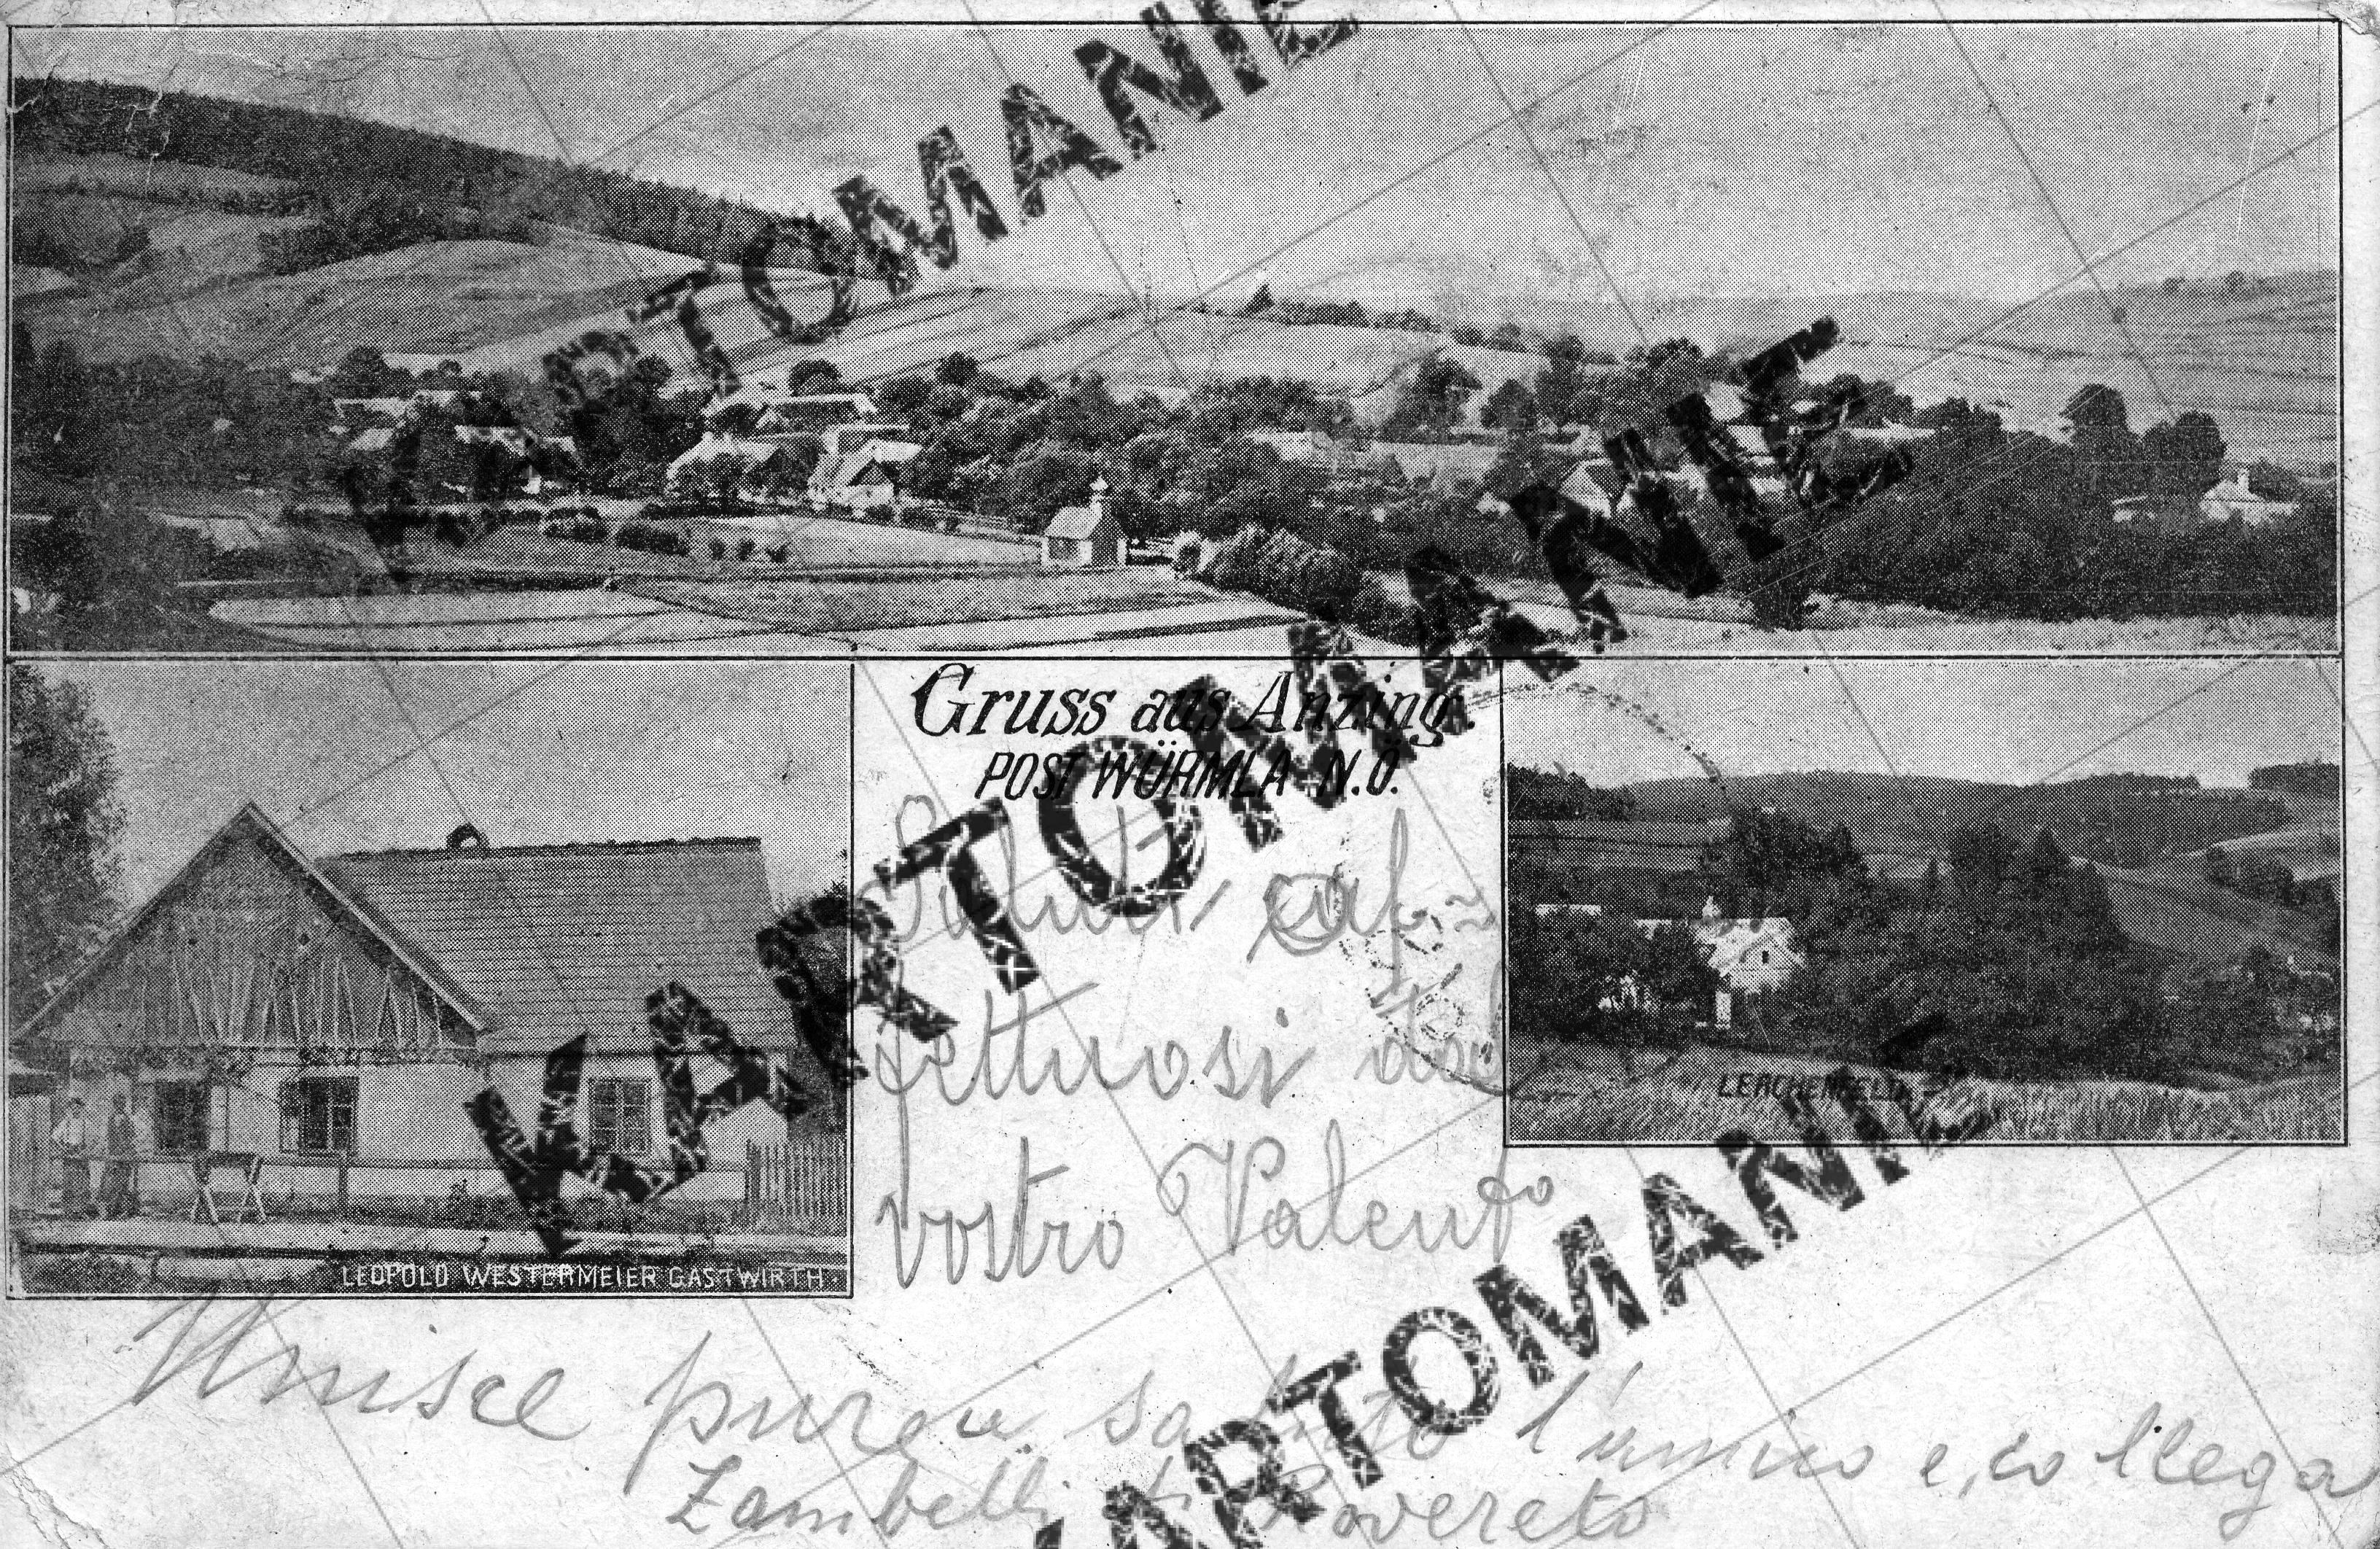 Gruss aus Anzing.
POST WÜRMLA N.Ö.
Saluti af=
fettuosi dal
vostro Valento
LERCHENFELD
LEOPOLD WESTERMEIER GASTWIRTH.
Unisce pure u saluto l'amico e collega
Zambelli di Rovereto
KARTOMANIE
KARTOMANIE
KARTOMANIE